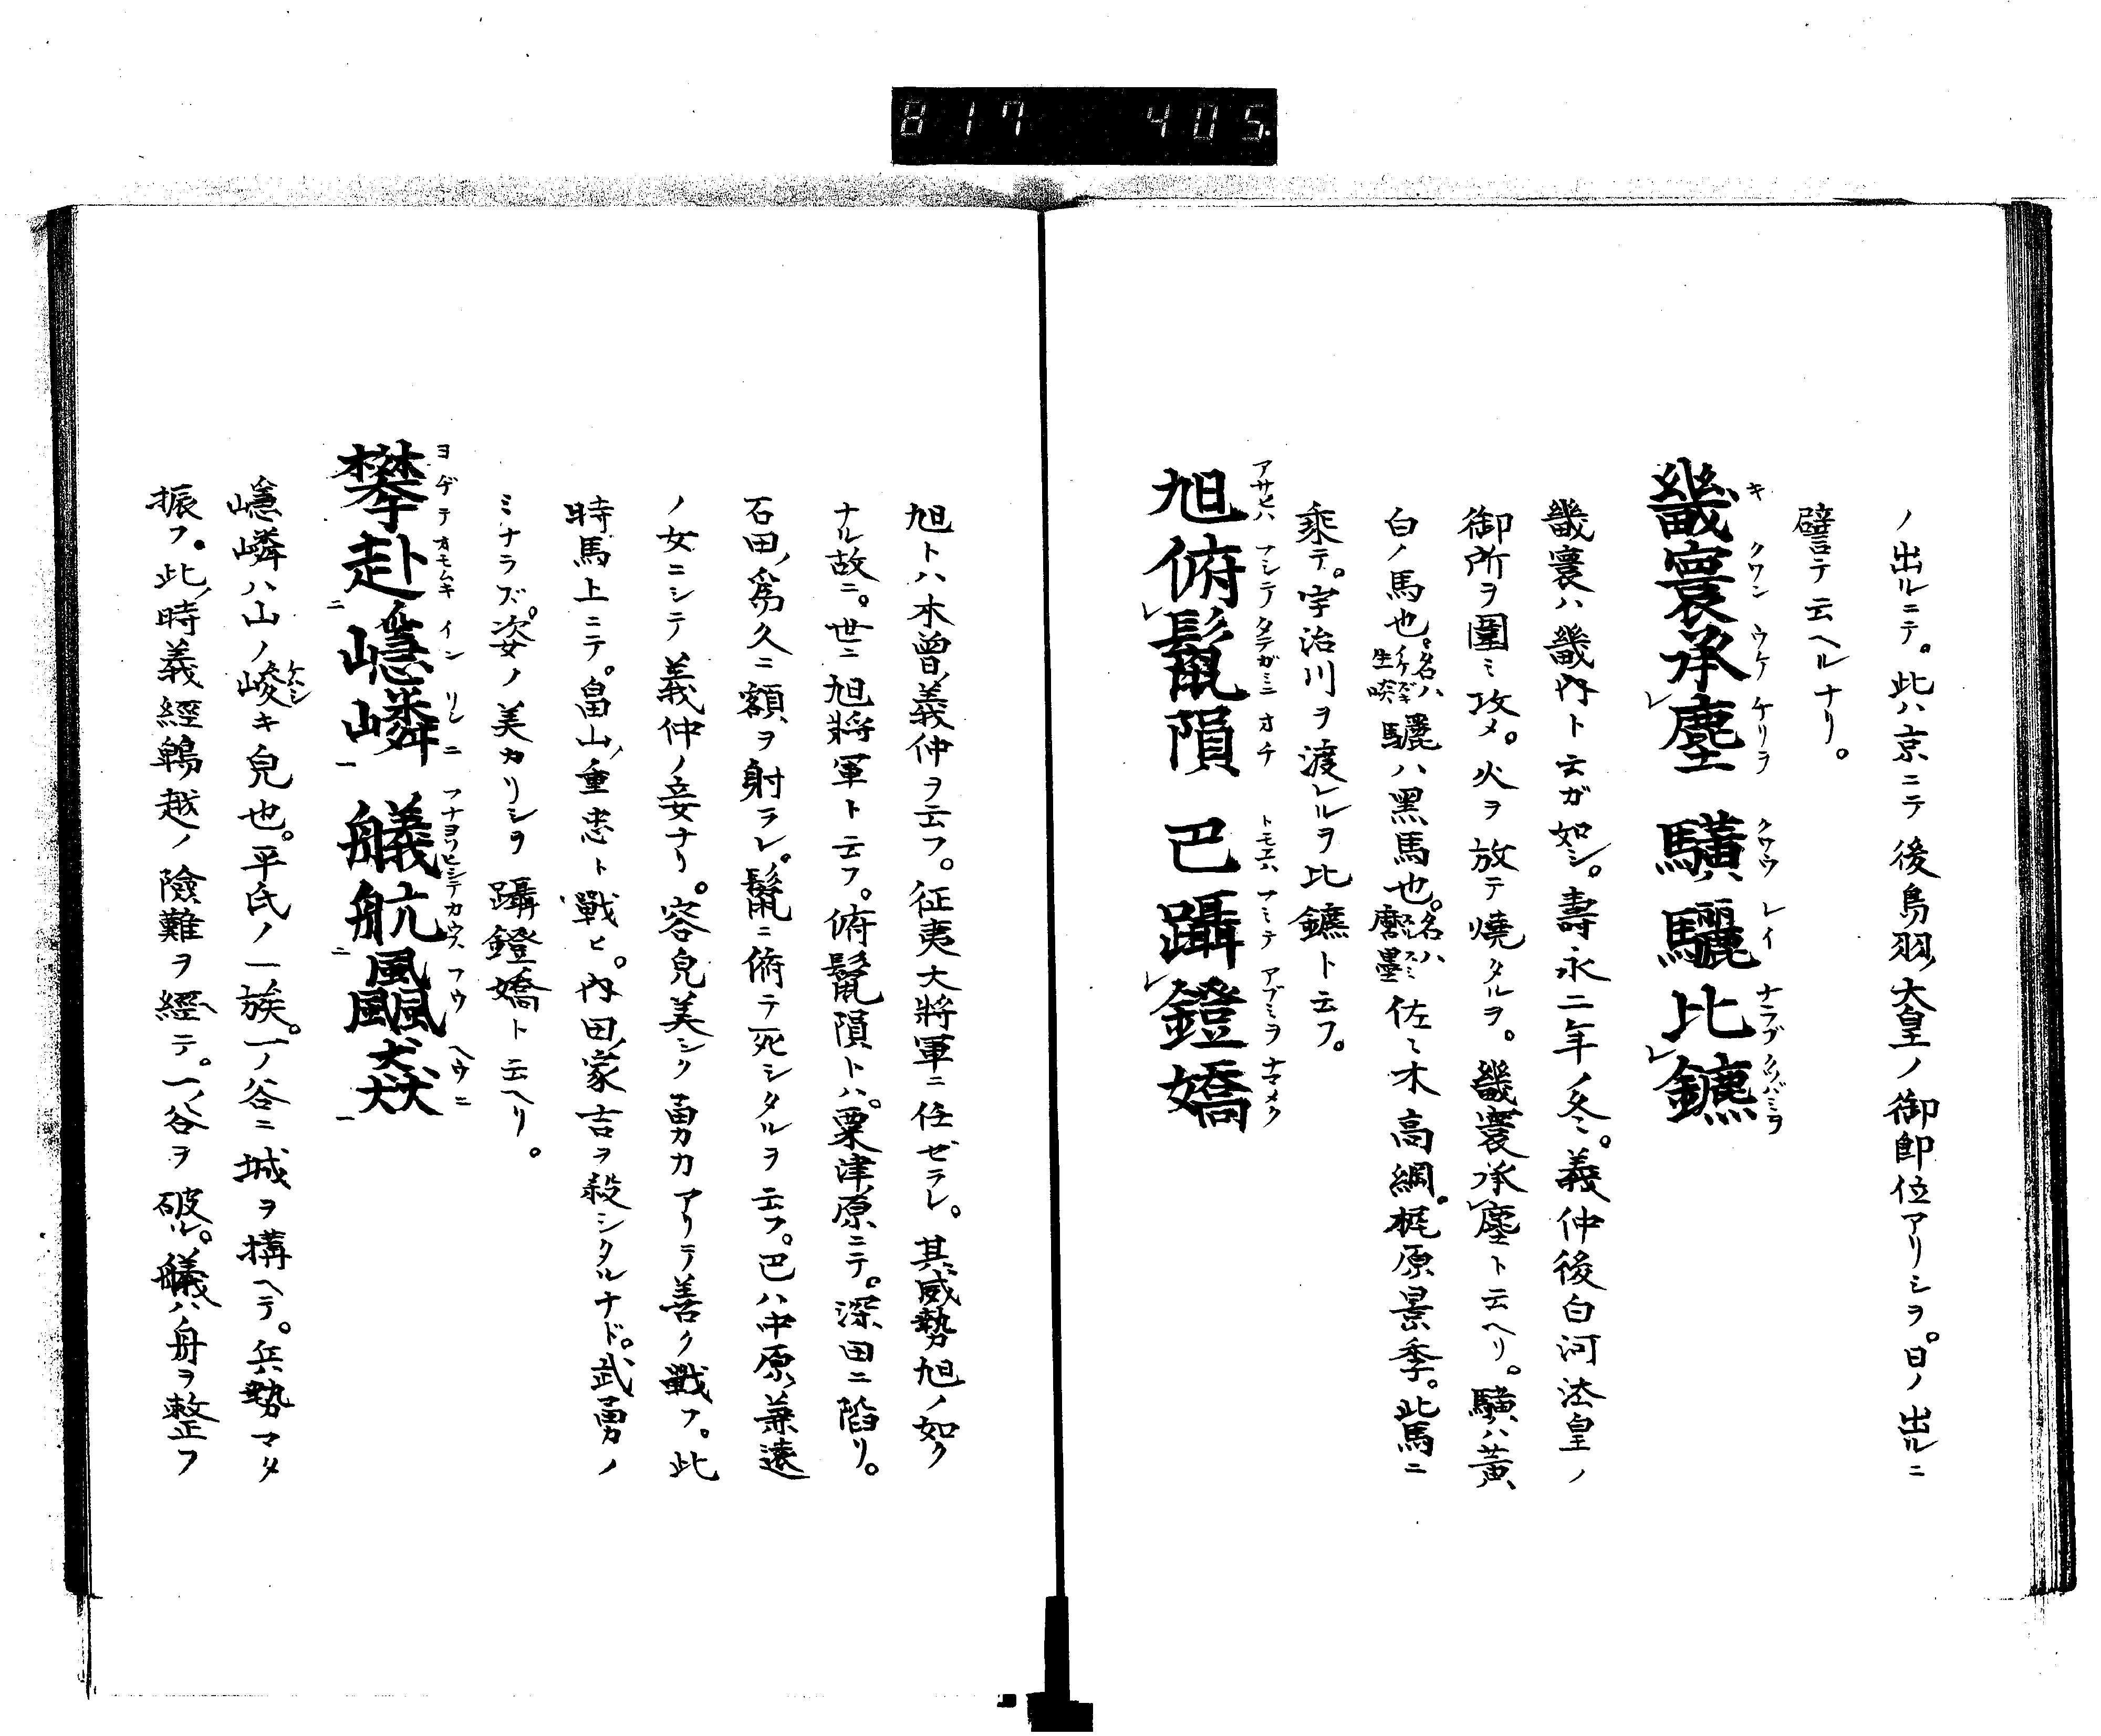 817 405.
ノ出ルニテ。此ハ京ニテ後鳥羽大皇ノ御即位アリシヲ。日ノ出ルニ
譬テ云ヘルナリ。
畿寰承塵 驥驪比鑣
畿寰ハ畿内ト云ガ如シ。壽永二年ノ冬。義仲後白河法皇ノ
御所ヲ圍ミ攻メ。火ヲ放テ燒タルヲ。畿寰承塵ト云ヘリ。驥ハ黃
白ノ馬也。名ハ生唼 驪ハ黑馬也。名ハ磨墨 佐々木高綱。梶原景季。此馬ニ
乘テ。宇治川ヲ渡レルヲ比鑣ト云フ。
旭俯鬣隕 巴躡鐙嬌
旭トハ木曾義仲ヲ云フ。征夷大將軍ニ任ゼラレ。其威勢旭ノ如ク
ナル故ニ。世ニ旭將軍ト云フ。俯鬣隕トハ。粟津原ニテ。深田ニ陷リ。
石田爲久ニ額ヲ射ラレ。鬣ニ俯テ死シタルヲ云フ。巴ハ中原兼遠
ノ女ニシテ義仲ノ妾ナリ。容皃美シク勇力アリテ善ク戰フ。此
時馬上ニテ。畠山重忠ト戰ヒ。内田家吉ヲ殺シタルナド。武勇ノ
ミナラズ。姿ノ美カリシヲ躡鐙嬌ト云ヘリ。
攀赴嶾嶙 艤航飍猋
嶾嶙ハ山ノ峻キ皃也。平氏ノ一族。一ノ谷ニ城ヲ搆ヘテ。兵勢マタ
振フ。此時義經鵯越ノ險難ヲ經テ。一谷ヲ破ル。艤ハ舟ヲ整フ